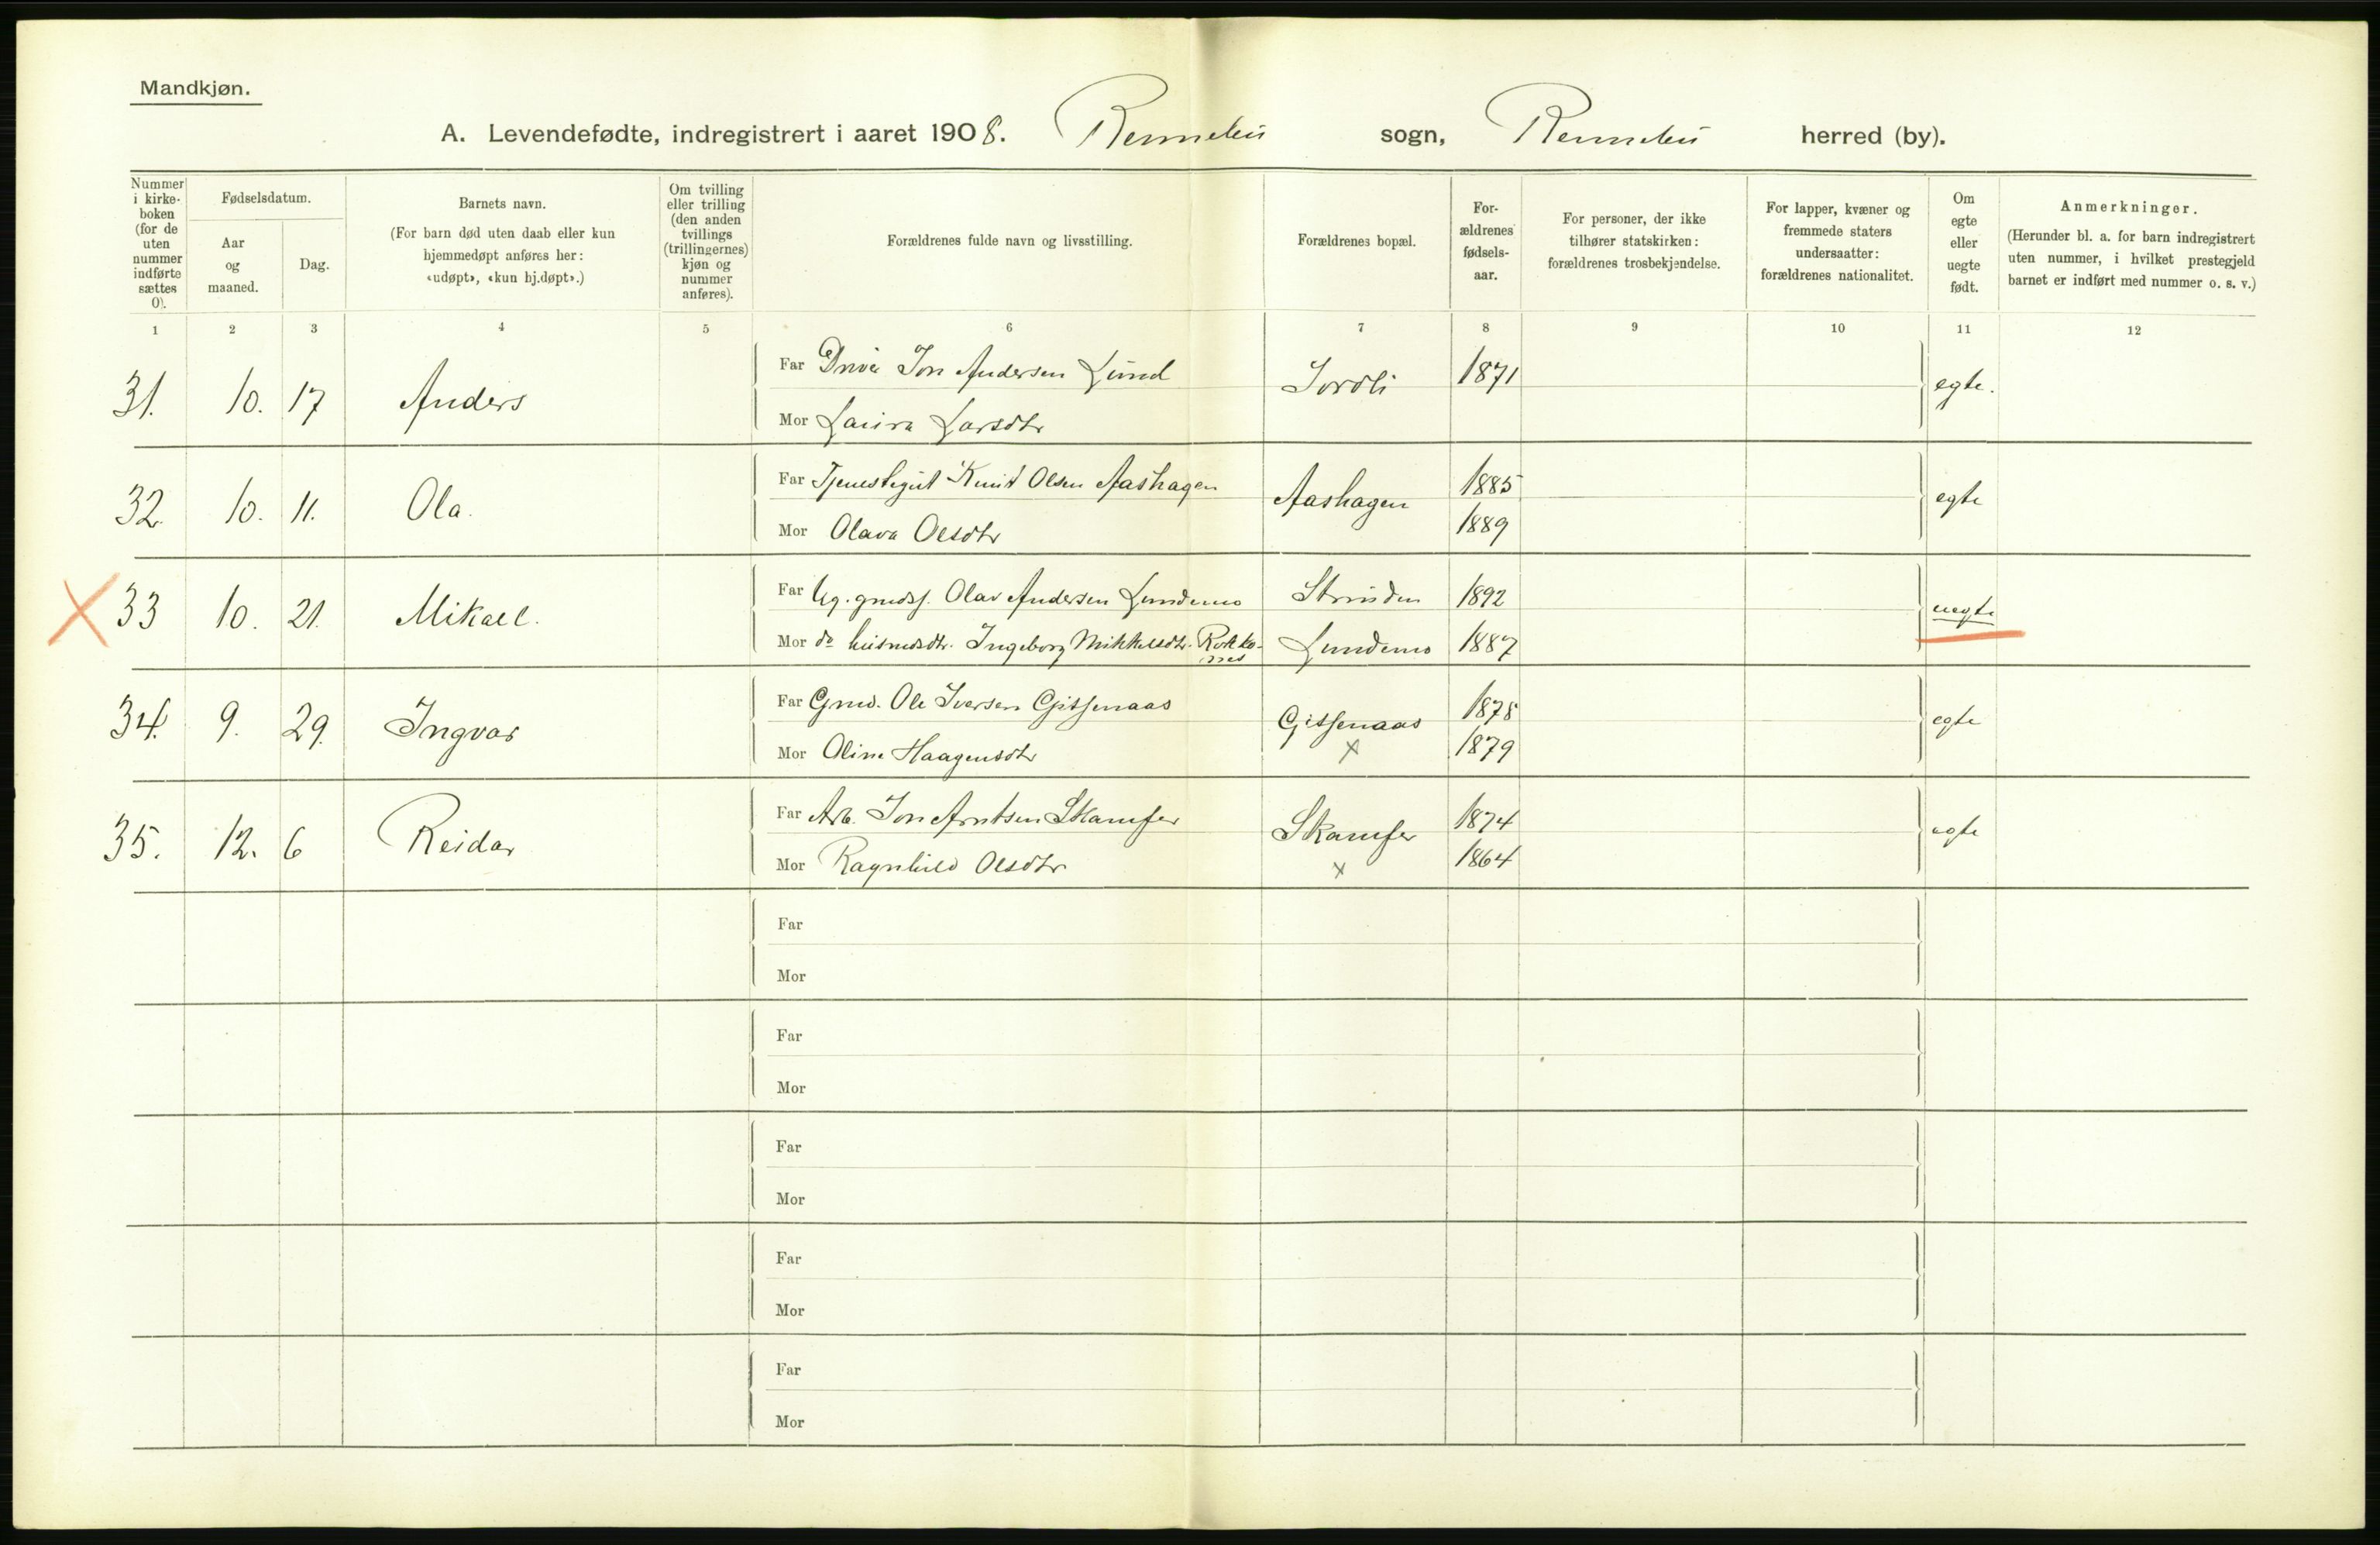 Mandkjøn.
A. Levendefødte, indregistrert i aaret 1908. Rennebu sogn, Rennebu herred (by).
Nummer i kirke-boken (for de uten nummer indførte sættes 0).
Fødselsdatum.
Aar og maaned.
Dag.
Barnets navn.
(For barn død uten daab eller kun hjemmedøpt anføres her: «udøpt», «kun hj.døpt».)
Om tvilling eller trilling (den anden tvillings (trillingernes) kjøn og nummer anføres).
Forældrenes fulde navn og livsstilling.
Forældrenes bopæl.
For-ældrenes fødsels-aar.
For personer, der ikke tilhører statskirken: forældrenes trosbekjendelse.
For lapper, kvæner og fremmede staters undersaatter: forældrenes nationalitet.
Om egte eller uegte født.
Anmerkninger.
(Herunder bl. a. for barn indregistrert uten nummer, i hvilket prestegjeld barnet er indført med nummer o. s. v.)
1 2 3 4 5 6 7 8 9 10 11 12
31. 10. 17 Anders Far Jon Andersen Lund Jordli 1871 egte.
Mor Laura Larsdtr
32. 10. 11. Ola. Far Tjenestegut Knut Olsen Aashagen Aashagen 1885 egte
Mor Olava Olsdtr 1889
X 33 10. 21. Mikael. Far Ug. gmdsf. Olav Andersen Lundemo Strinden 1892 uegte
Mor do husmdsdtr. Ingeborg Mikkelsdtr. Lundemo 1887
34. 9. 29. Ingvar Far Gmd. Ole Iversen Gissenaas Gissenaas 1878 egte
Mor Oline Haagensdtr x 1879
35. 12. 6 Reidar Far Arb. Jon Arntsen Skamfer Skamfer 1874 egte
Mor Ragnhild Olsdtr x 1864
Far
Mor
Far
Mor
Far
Mor
Far
Mor
Far
Mor